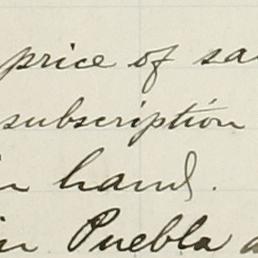 price of
subscription
hand.
in Puebla